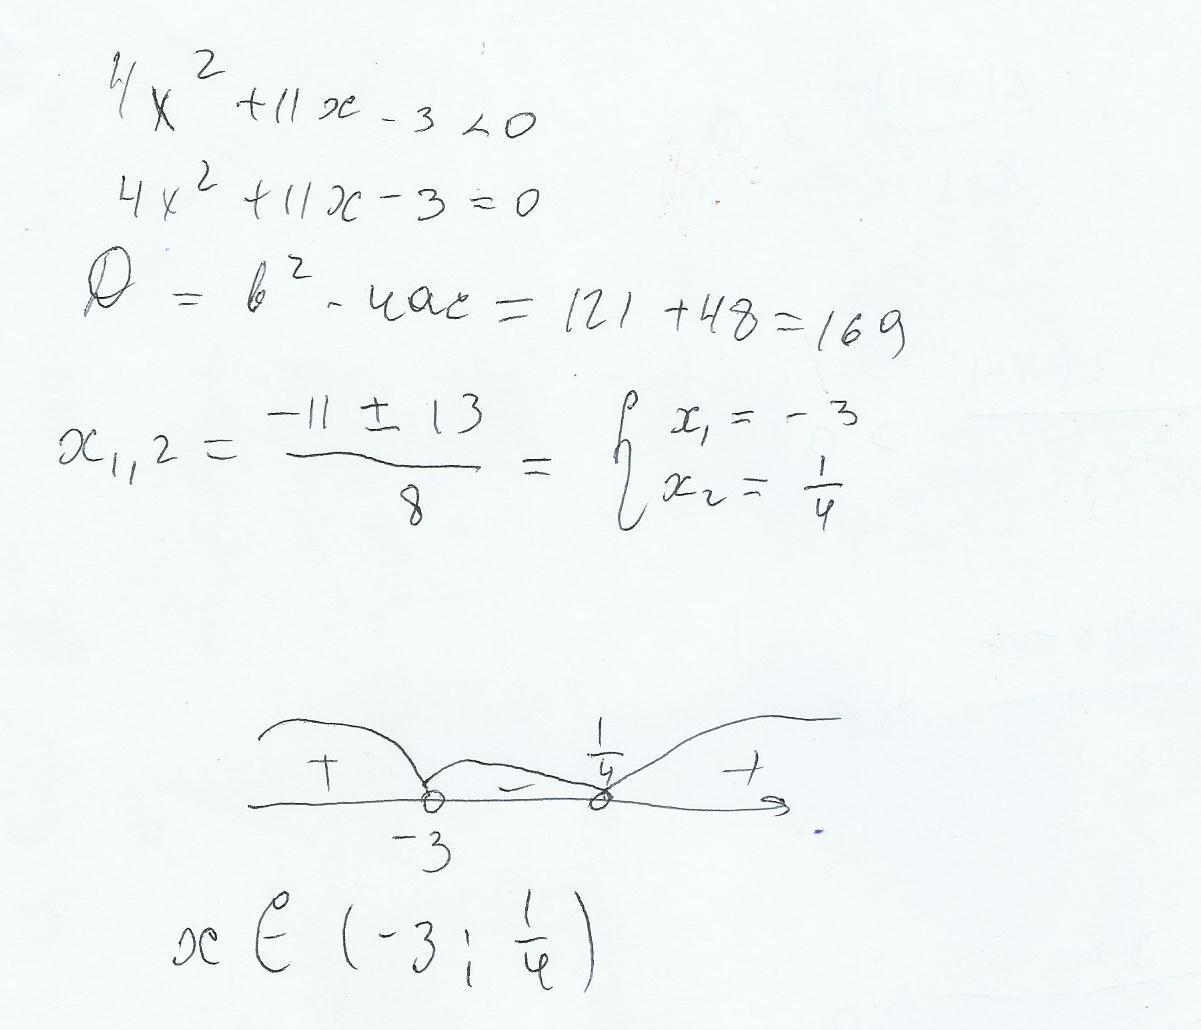 4x² + 11x - 3 < 0
4x² + 11x - 3 = 0
D = b² - 4ac = 121 + 48 = 169
x₁,₂ = (-11 ± 13)/8 = { x₁ = -3
x₂ = 1/4
+ - 1/4 +
-3
x ∈ (-3; 1/4)